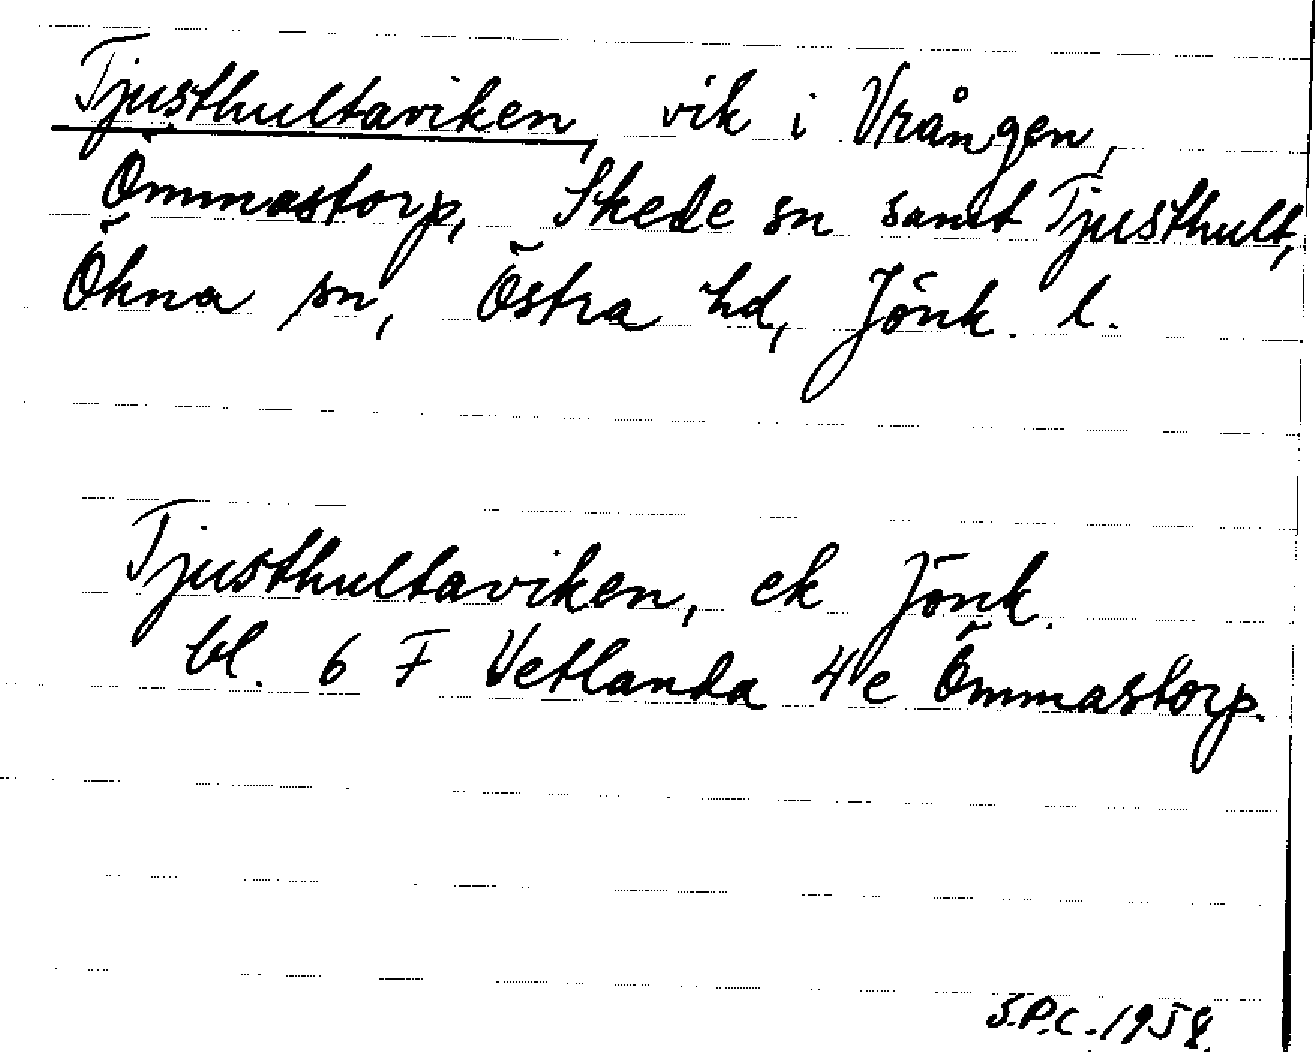 Tjusthultaviken, vik i Vrången,
Ömmastorp, Skede sn samt Tjusthult,
Ökna sn, Östra hd, Jönk. l.
Tjusthultaviken, ek Jönk.
bl. 6 F Vetlanda 4e Ömmastorp.
S.P.C. 1958.